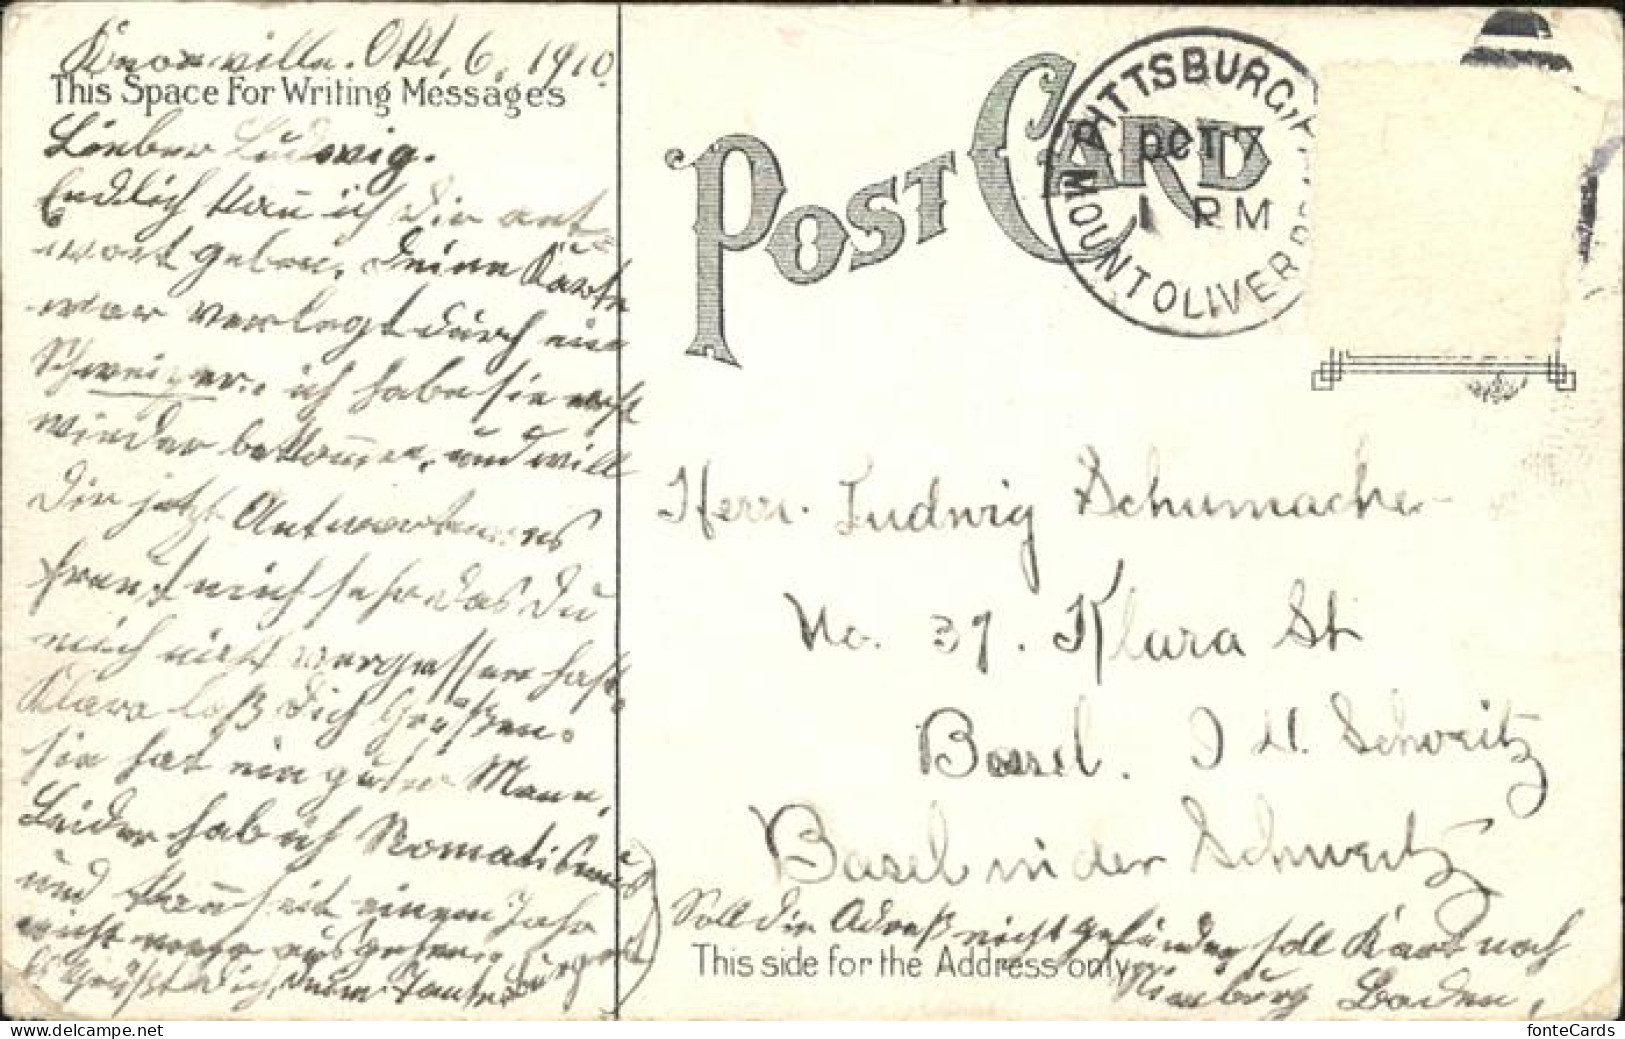 Knoxville. Okt. 6. 1910
This Space For Writing Messages
Lieber Ludwig.
Endlich kan̄ ich dir ant=
wort geben, deine Karte
war verlegt durch ein
Schweizer. ich habe sie erst
wieder bekom̄en, und will
dir jetzt Antworten es
freut mich sehr das du
mich nicht vergessen hast.
Klara laß dich Grüßen.
sie hat ein guter Mann,
Leider hab ich Romatismus
und kan̄ seit einem Jahr
nicht mehr ausgehen
es Grüßt dich, deine Tante
POST CARD
PITTSBURG, P
OCT 7
1 PM
MOUNT OLIVER
Herrn. Ludwig Schumacher
No. 37. Klara St
Basel. I. d. Schweitz
Basel in der Schweitz
Soll die Adreß nicht gefunden soll Kart nach
This side for the Address only
Baden,
fonteCards